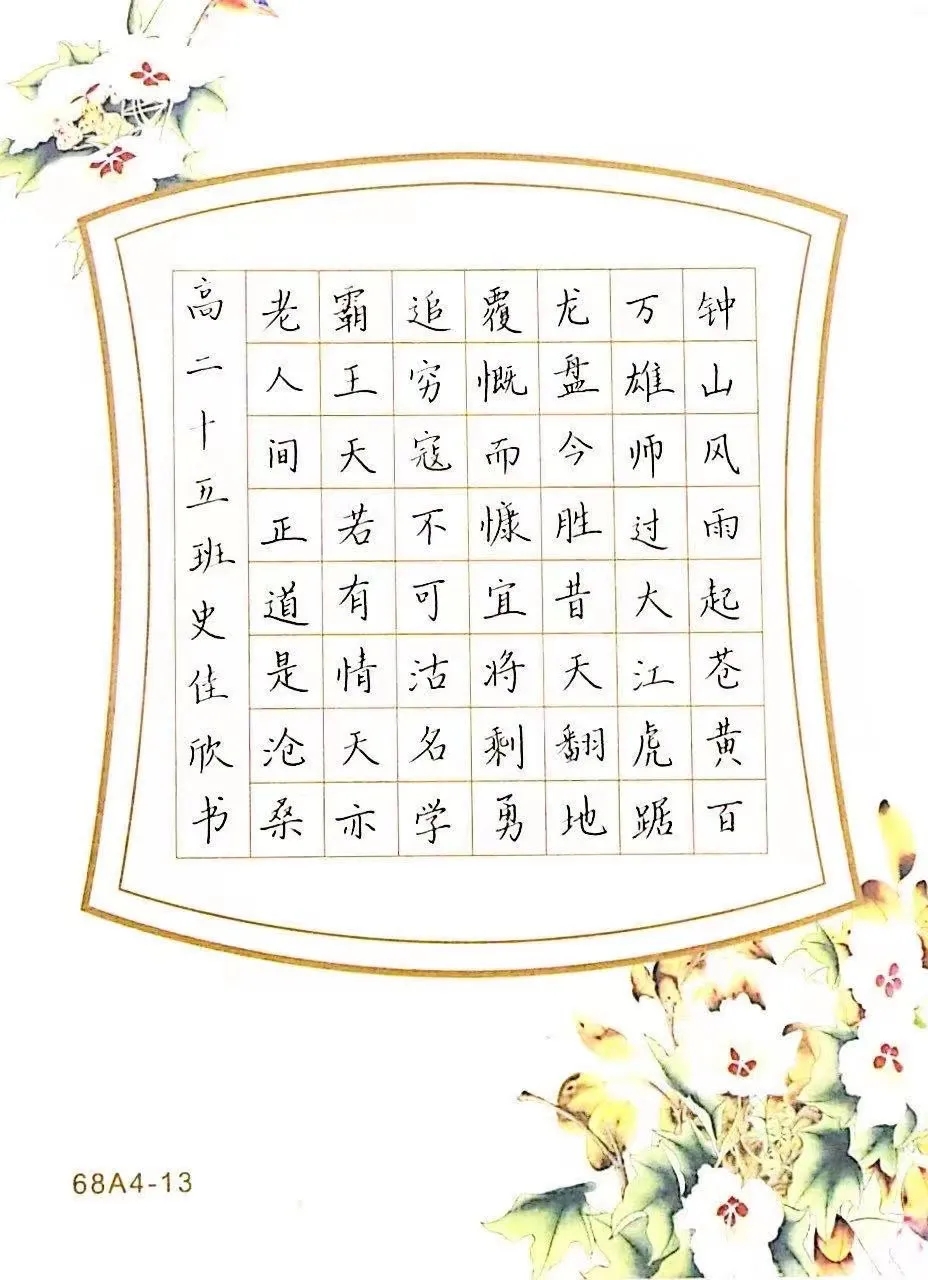 钟山风雨起苍黄百
万雄师过大江虎踞
龙盘今胜昔天翻地
覆慨而慷宜将剩勇
追穷寇不可沽名学
霸王天若有情天亦
老人间正道是沧桑
高二十五班史佳欣书
68A4-13